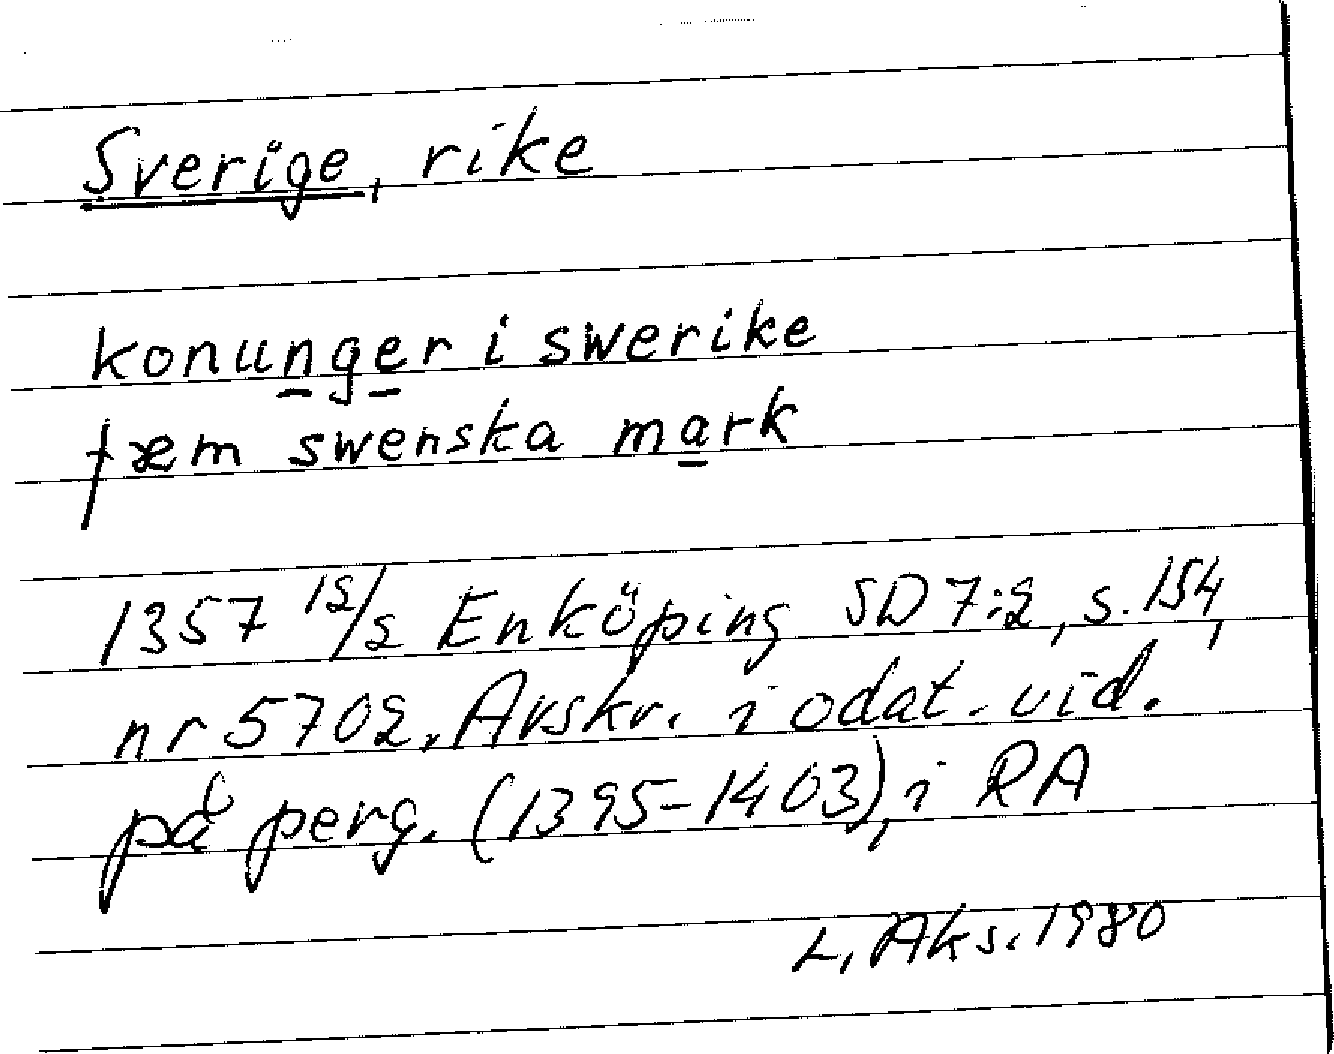 Sverige, rike
konunger i swerike
fæm swenska mark
1357 12/2 Enköping SD 7:2, s. 154,
nr 5702. Avskr. i odat. vid.
på perg. (1395-1403), i RA
L. Aks. 1980